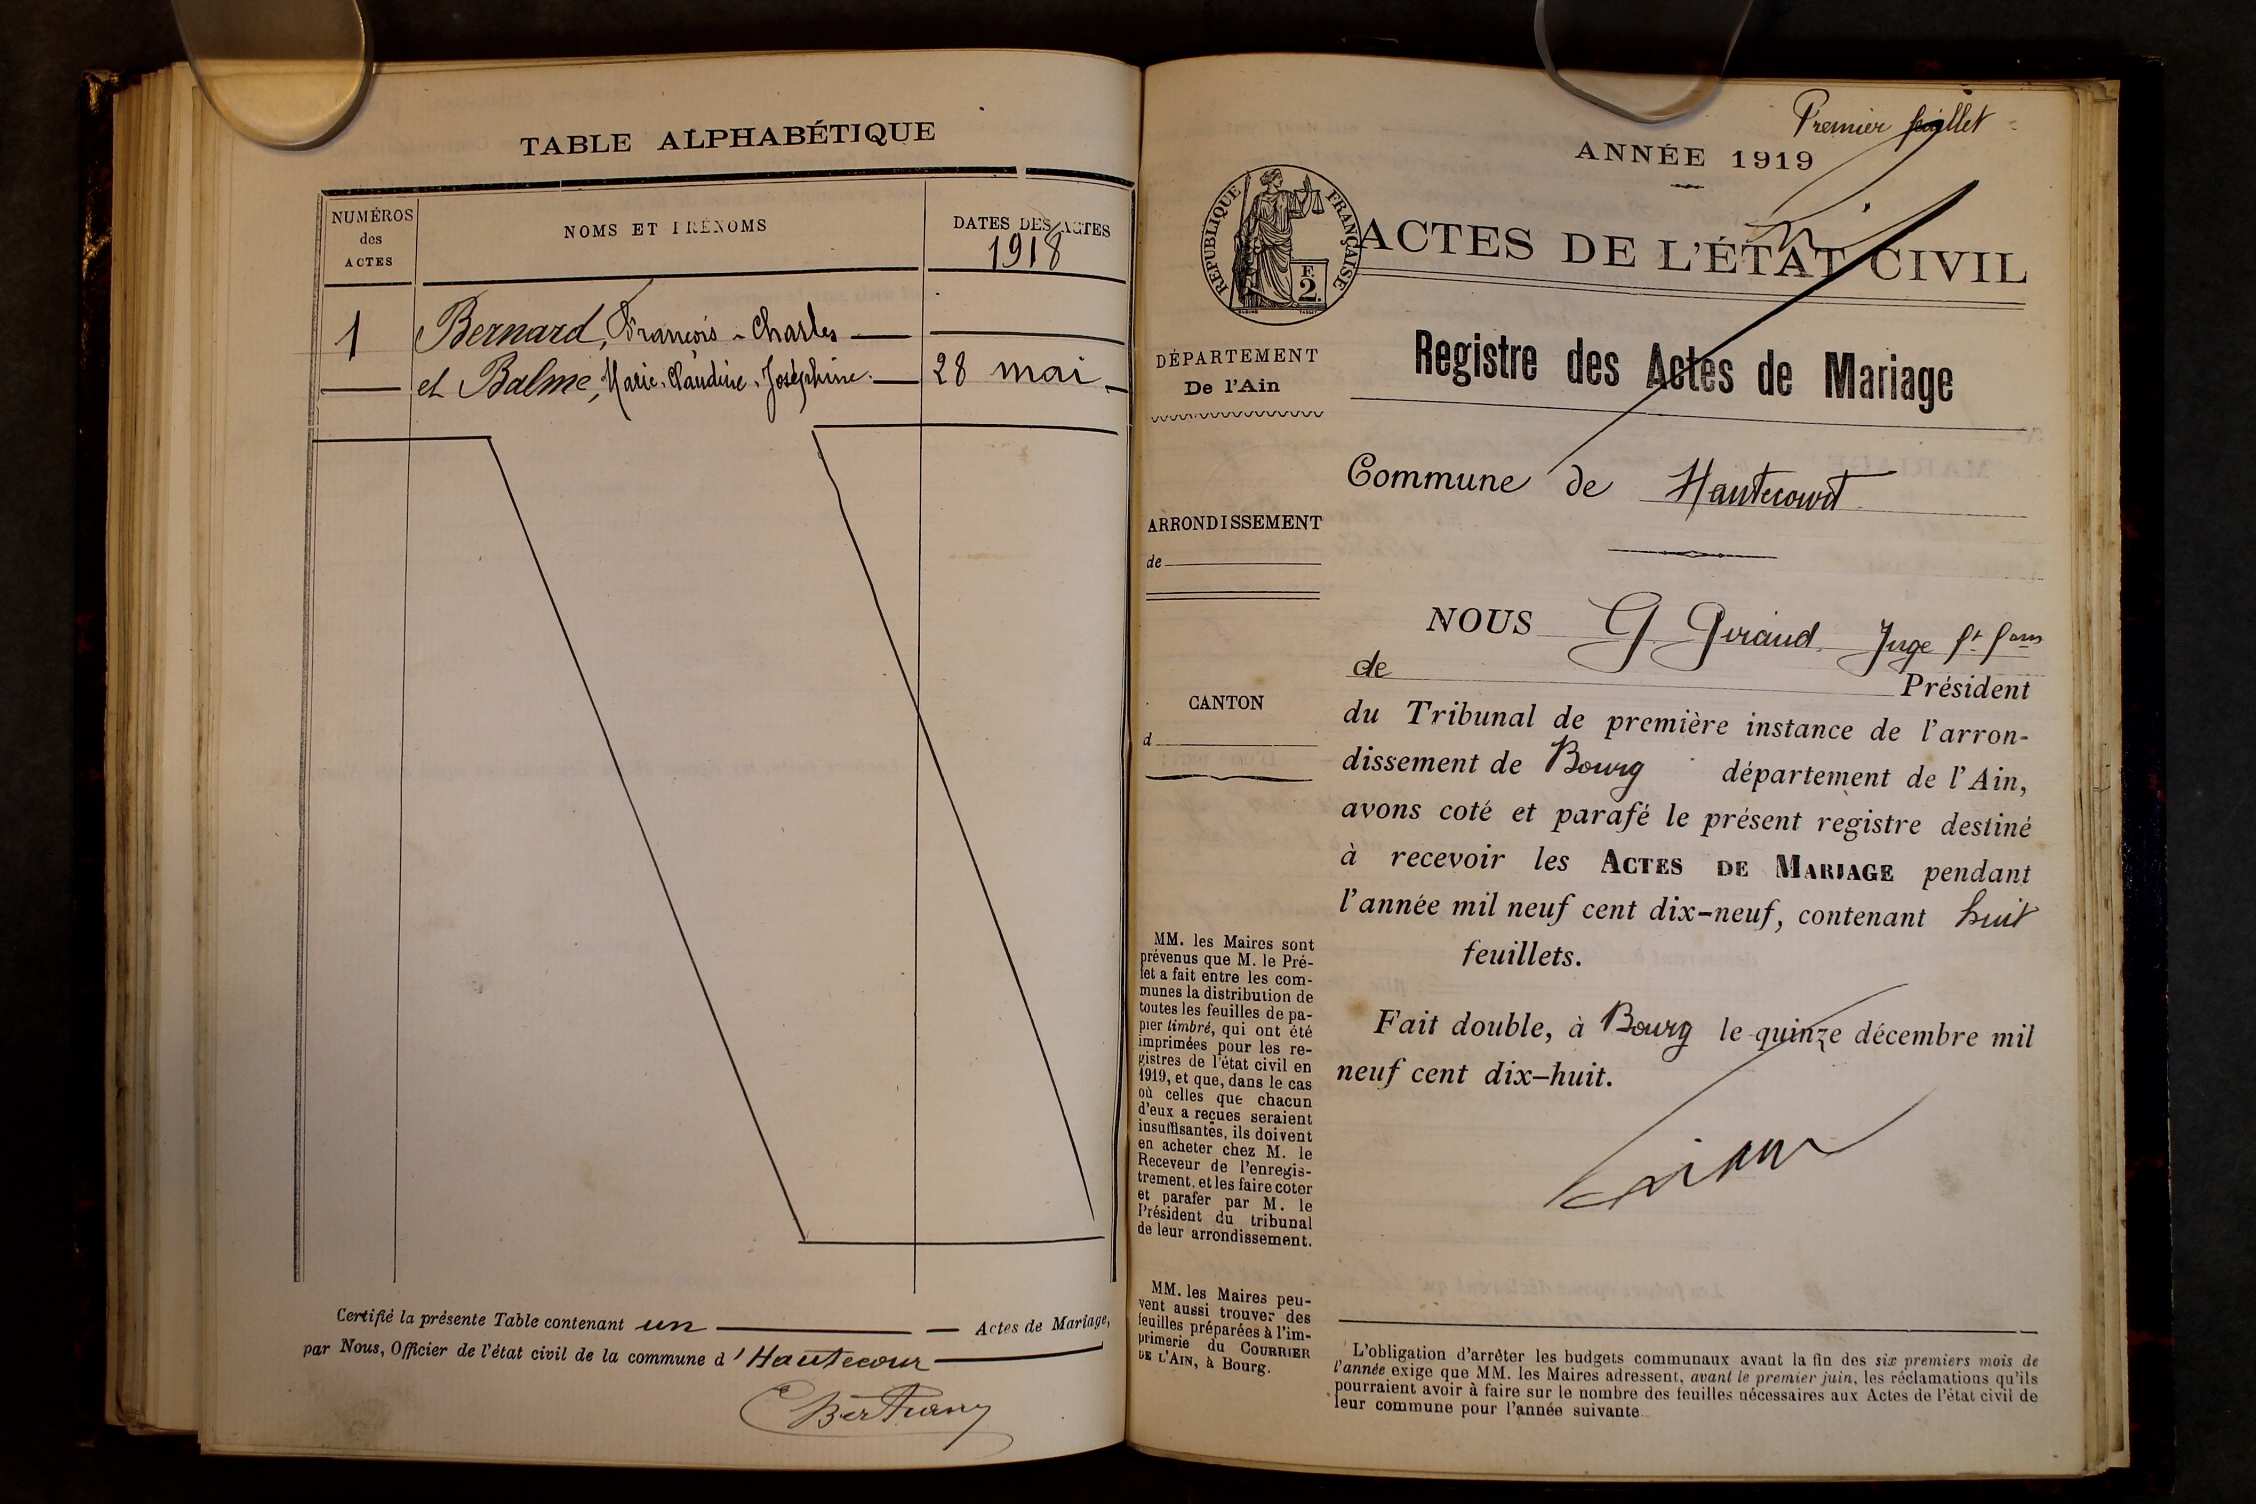 TABLE ALPHABÉTIQUE
NUMÉROS
des
ACTES
NOMS ET PRÉNOMS
DATES DES ACTES
1918
1
Bernard, François-Charles
et Balme, Marie-Claudine-Joséphine.
28 mai
Certifié la présente Table contenant un Actes de Mariage,
par Nous, Officier de l'état civil de la commune d'Hautecour
Premier feuillet
ANNÉE 1919
RÉPUBLIQUE FRANÇAISE
F.
2.
ACTES DE L'ÉTAT CIVIL
Registre des Actes de Mariage
DÉPARTEMENT
De l'Ain
Commune de Hautecourt
ARRONDISSEMENT
de
CANTON
d
NOUS G Giraud Juge
de Président
du Tribunal de première instance de l'arron-
dissement de Bourg département de l'Ain,
avons coté et parafé le présent registre destiné
à recevoir les ACTES DE MARIAGE pendant
l'année mil neuf cent dix-neuf, contenant huit
feuillets.
Fait double, à Bourg le quinze décembre mil
neuf cent dix-huit.
MM. les Maires sont
prévenus que M. le Pré-
fet a fait entre les com-
munes la distribution de
toutes les feuilles de pa-
pier timbré, qui ont été
imprimées pour les re-
gistres de l'état civil en
1919, et que, dans le cas
où celles que chacun
d'eux a reçues seraient
insuffisantes, ils doivent
en acheter chez M. le
Receveur de l'enregis-
trement, et les faire coter
et parafer par M. le
Président du tribunal
de leur arrondissement.
MM. les Maires peu-
vent aussi trouver des
feuilles préparées à l'im-
primerie du COURRIER
DE L'AIN, à Bourg.
L'obligation d'arrêter les budgets communaux avant la fin des six premiers mois de
l'année exige que MM. les Maires adressent, avant le premier juin, les réclamations qu'ils
pourraient avoir à faire sur le nombre des feuilles nécessaires aux Actes de l'état civil de
leur commune pour l'année suivante